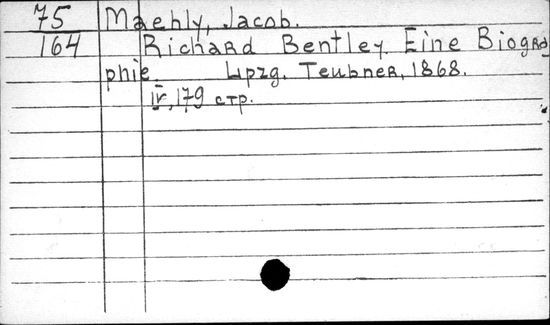 75 Maehly, Jacob.
164 Richard Bentley. Eine Biogra
phie. Lpzg. Teubner, 1868.
IV, 179 стр.